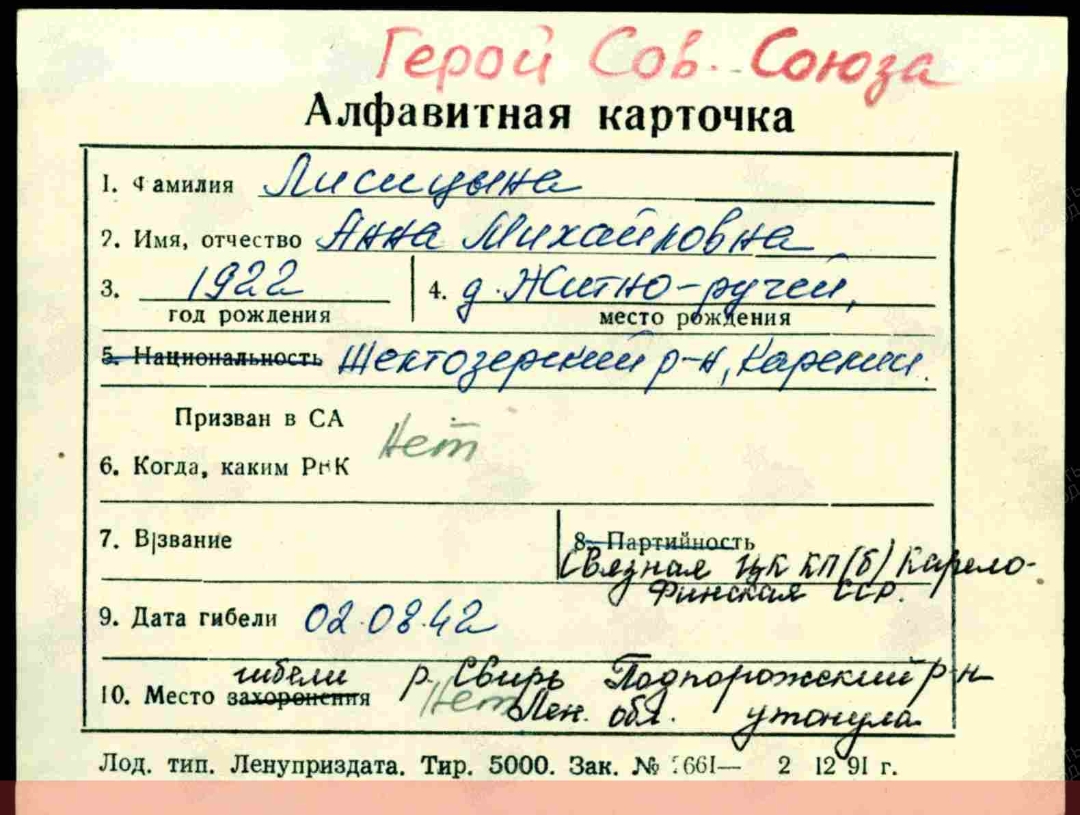 Герой Сов. Союза
Алфавитная карточка
1. Фамилия Лисицына
2. Имя, отчество Анна Михайловна
3. 1922 4. д. Житно-ручей,
год рождения место рождения
5. Национальность Шелтозерский р-н, Карелии.
Призван в СА
Нет
6. Когда, каким РвК
7. В/звание 8. Партийность
Связная ЦК КП(б) Карело-
Финская ССР.
9. Дата гибели 02.08.42
гибели р. Свирь Подпорожский р-н
10. Место захоронения Нет Лен. обл. утонула
Лод. тип. Ленуприздата. Тир. 5000. Зак. № 661— 2 12 91 г.